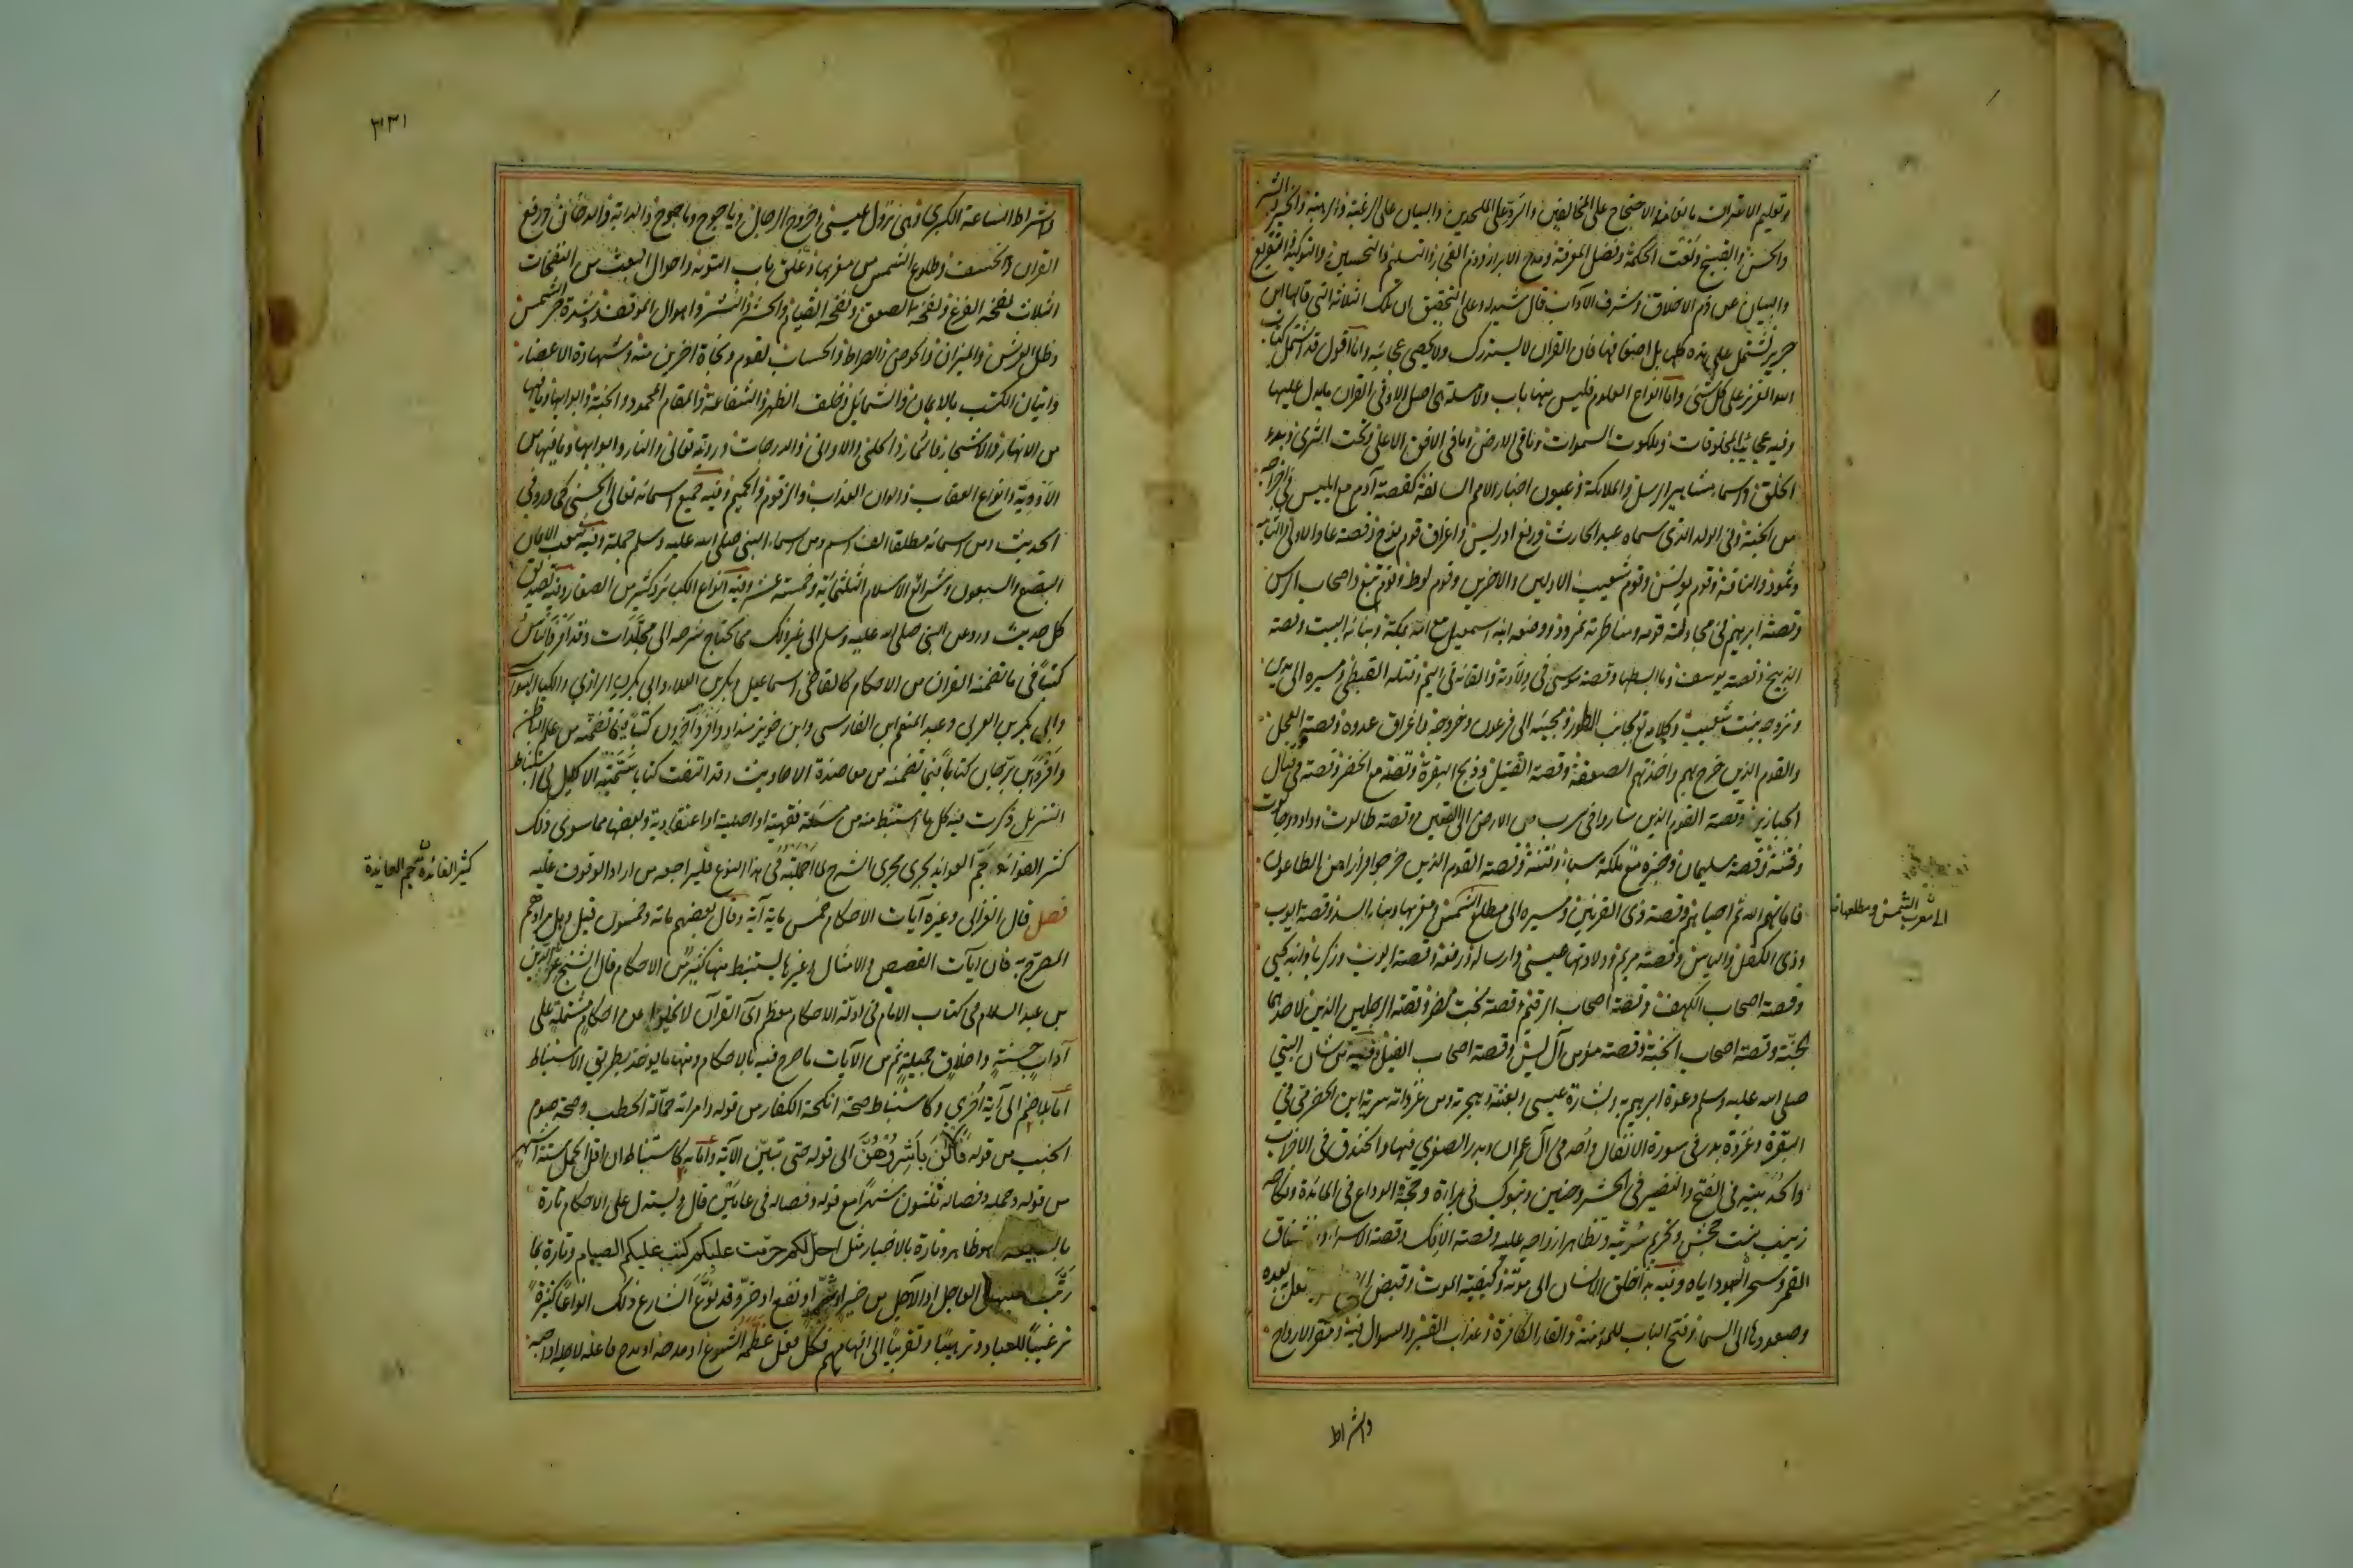 وتعليم الاقترات بانعامه والاحتجاج على المخالفين والرد على الملحدين والبيان على الرغبة والرهبة والخير والشر
والحسن والقبيح ونعت الحكمة وفضل المعرفة ومدح الابرار وذم الفجار والتسليم والتحسين والتوكيد والتقريع
والبيان عن ذم الاخلاق وشرف الآداب قال شيدله وعلى التحقيق ان تلك الثلاثة التي قالها ابن
جرير تشتمل على هذه كلها بل اضعافها فان القرآن لا يستدرك ولا يحصى عجائبه وانا اقول قد اشتمل كتاب
الله العزيز على كل شيء واما انواع العلوم فليس منها باب ولا مسئلة هي اصل الا وفي القرآن ما يدل عليها
وفيه عجائب المخلوقات وملكوت السموات وما في الارض وما في الافق الاعلى وتحت الثرى وبدء
الخلق واسماء مشاهير الرسل والملائكة وعيون اخبار الامم السالفة كقصة آدم مع ابليس في اخراجه
من الجنة وفي الولد الذي سماه عبد الحارث ورفع ادريس واغراق قوم نوح وقصة عاد الاولى والثانية
وثمود والناقة وقوم يونس وقوم شعيب الاولين والاخرين وقوم لوط وقوم تبع واصحاب الرس
وقصة ابرهيم في مجادلته قومه ومناظرته نمرود ووضعه ابنه اسمعيل مع امه بمكة وبنائه البيت وقصة
الذبيح وقصة يوسف وما ابسطها وقصة موسى في ولادته والقائه في اليم وقتله القبطي ومسيره الى مدين
وتزوجه بنت شعيب وكلامه تع بجانب الطور ومجيئه الى فرعون وخروجه واغراق عدوه وقصة العجل
والقوم الذين خرج بهم واخذتهم الصعقة وقصة القتيل وذبح البقرة وقصته مع الخضر وقصته في قتال
الجبارين وقصة القوم الذين ساروا في سرب من الارض الى الصين وقصة طالوت وداود مع جالوت
وفتنته وقصة سليمان وخبره مع ملكة سبا وفتنته وقصة القوم الذين خرجوا فرارا من الطاعون
فاماتهم الله ثم احياهم وقصة ذي القرنين ومسيره الى مطلع الشمس ومغربها وبناء السد وقصة ايوب
وذي الكفل والياس وقصة مريم وولادتها عيسى وارساله ورفعه وقصة زكريا وابنه يحيى
وقصة اصحاب الكهف وقصة اصحاب الرقيم وقصة بخت نصر وقصة الرجلين الذين لاحدهما
الجنة وقصة اصحاب الجنة وقصة مؤمن آل يس وقصة اصحاب الفيل وفيه من شان النبي
صلى الله عليه وسلم دعوة ابرهيم به وبشارة عيسى وبعثه وهجرته ومن غزواته سرية ابن الحضرمي في
البقرة وغزوة بدر في سورة الانفال واحد في آل عمران وبدر الصغرى فيها والخندق في الاحزاب
والحديبية في الفتح والنضير في الحشر وحنين وتبوك في براءة وحجة الوداع في المائدة ونكاحه
زينب بنت جحش وتحريم سريته وتظاهر ازواجه عليه وقصة الافك وقصة الاسراء وانشقاق
القمر وسحر اليهود اياه وفيه بدأ خلق الانسان الى موته وكيفية الموت وقبض يفعل بعده
وصعودها الى السماء وفتح الباب للمؤمنة والقاء الكافرة وعذاب القبر والسوال فيه ومقر الارواح
الى مغرب الشمس ومطلعها
واشراط
٣٣١
واشراط الساعة الكبرى وهي نزول عيسى وخروج الدجال ويأجوج ومأجوج والدابة والدخان ورفع
القران والخسف وطلوع الشمس من مغربها وغلق باب التوبة واحوال البعث من النفخات
الثلاث نفخة الفزع ونفخة الصعق ونفخة القيام والحشر والنشر واهوال الموقف وشدة حر الشمس
وظل العرش والميزان والحوض والصراط والحساب لقوم ونجاة اخرين منه وشهادة الاعضاء
واتيان الكتب بالايمان والشمائل وخلف الظهر والشفاعة والمقام المحمود والجنة وابوابها وما فيها
من الانهار والاشجار والثمار والحلي والاواني والدرجات ورؤيته تعالى والنار وابوابها وما فيها من
الاودية وانواع العقاب والوان العذاب والزقوم والحميم وفيه جميع اسمائه تعالى الحسنى كما ورد في
الحديث ومن اسمائه مطلقا الف اسم ومن اسماء النبي صلى الله عليه وسلم جملة وفيه شعب الايمان
البضع والسبعون وشرائع الاسلام الثلثمائة وخمسة عشر وفيه انواع الكبائر وكثير من الصغائر وفيه تصديق
كل حديث ورد عن النبي صلى الله عليه وسلم الى غير ذلك مما يحتاج شرحه الى مجلدات وقد افرد الناس
كتبا في ما تضمنه القران من الاحكام كالقاضي اسماعيل وبكر بن العلاء وابي بكر الرازي والكيا الهراسي
وابي بكر بن العربي وعبد المنعم ابن الفارسي وابن خويز منداد وافرد آخرون كتبا فيما تضمنه من علم الباطن
وافرد ابن برجان كتابا فيما تضمنه من معاضدة الاحاديث وقد الفت كتابا سميته الاكليل في استنباط
التنزيل ذكرت فيه كل ما استنبط منه من مسئلة فقهية او اصلية او اعتقادية وبعضها مما سوى ذلك
كثير الفوائد جم العوائد يجري مجرى الشرح لما اجملته في هذا النوع فليراجعه من اراد الوقوف عليه
فصل قال الغزالي وغيره آيات الاحكام خمس ماية آية وقال بعضهم مائة وخمسون قيل ولعل مرادهم
المصرح به فان آيات القصص والامثال وغيرها يستنبط منها كثير من الاحكام قال الشيخ عز الدين
بن عبد السلام في كتاب الامام في ادلة الاحكام معظم آي القرآن لا يخلوا عن احكام مشتملة على
آداب حسنة واخلاق جميلة ثم من الآيات ما صرح فيه بالاحكام ومنها ما يوخذ بطريق الاستنباط
اما بلا ضم الى آية اخرى كاستنباط صحة انكحة الكفار من قوله وامراته حمالة الحطب وصحة صوم
الجنب من قوله فالآن باشروهن الى قوله حتى يتبين الآية واما به كاستنباط ان اقل الحمل ستة اشهر
من قوله وحمله وفصاله ثلثون شهرا مع قوله وفصاله في عامين قال ويستدل على الاحكام تارة
بالصيغة وهو ظاهر وتارة بالاخبار مثل احل لكم حرمت عليكم كتب عليكم الصيام وتارة بما
رتب عليها في العاجل او الآجل من خير او شر او نفع او ضر وقد نوع الشارع ذلك انواعا كثيرة
ترغيبا للعباد وترهيبا وتقريبا الى افهامهم فكل فعل عظمه الشرع او مدحه او مدح فاعله لاجله او احبه
كثير الفائدة جم العائدة